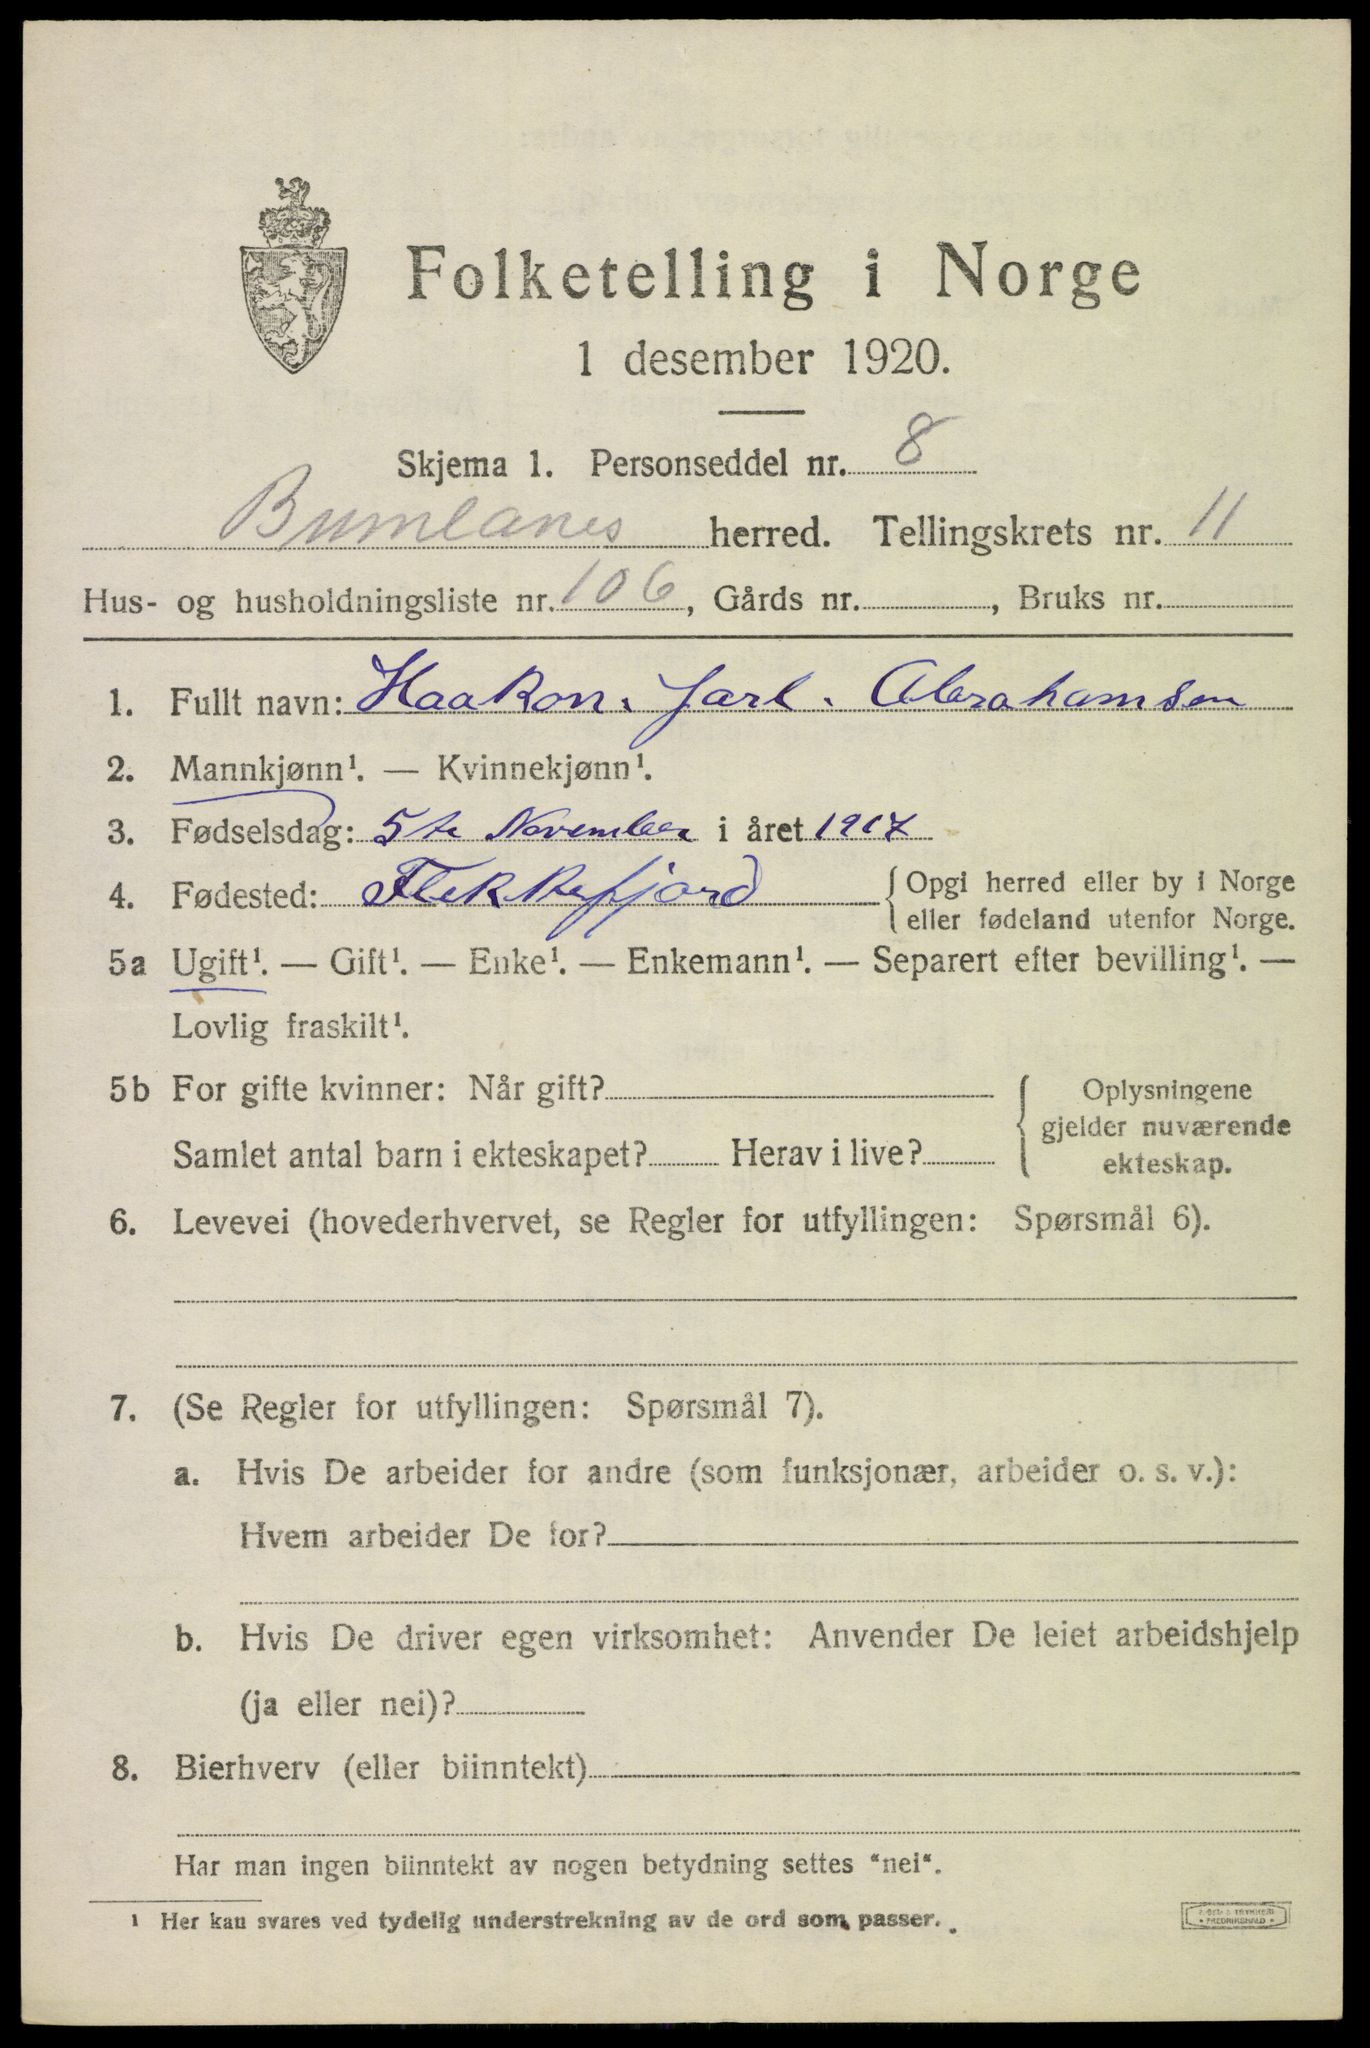 Folketelling i Norge
1 desember 1920.
Skjema 1. Personseddel nr. 8
Brunlanes herred. Tellingskrets nr. 11
Hus- og husholdningsliste nr. 106, Gårds nr. , Bruks nr.
1. Fullt navn: Haakon. Jarl. Abrahamsen
2. Mannkjønn¹. — Kvinnekjønn¹.
3. Fødselsdag: 5te November i året 1917
4. Fødested: Flekkefjord { Opgi herred eller by i Norge
eller fødeland utenfor Norge.
5a Ugift¹. — Gift¹. — Enke¹. — Enkemann¹. — Separert efter bevilling¹. —
Lovlig fraskilt¹.
5b For gifte kvinner: Når gift? { Oplysningene
gjelder nuværende
Samlet antal barn i ekteskapet? Herav i live? ekteskap.
6. Levevei (hovederhvervet, se Regler for utfyllingen: Spørsmål 6).
7. (Se Regler for utfyllingen: Spørsmål 7).
a. Hvis De arbeider for andre (som funksjonær, arbeider o. s. v.):
Hvem arbeider De for?
b. Hvis De driver egen virksomhet: Anvender De leiet arbeidshjelp
(ja eller nei)?
8. Bierhverv (eller biinntekt)
Har man ingen biinntekt av nogen betydning settes "nei".
¹ Her kan svares ved tydelig understrekning av de ord som passer.
FREDRIKSHALD